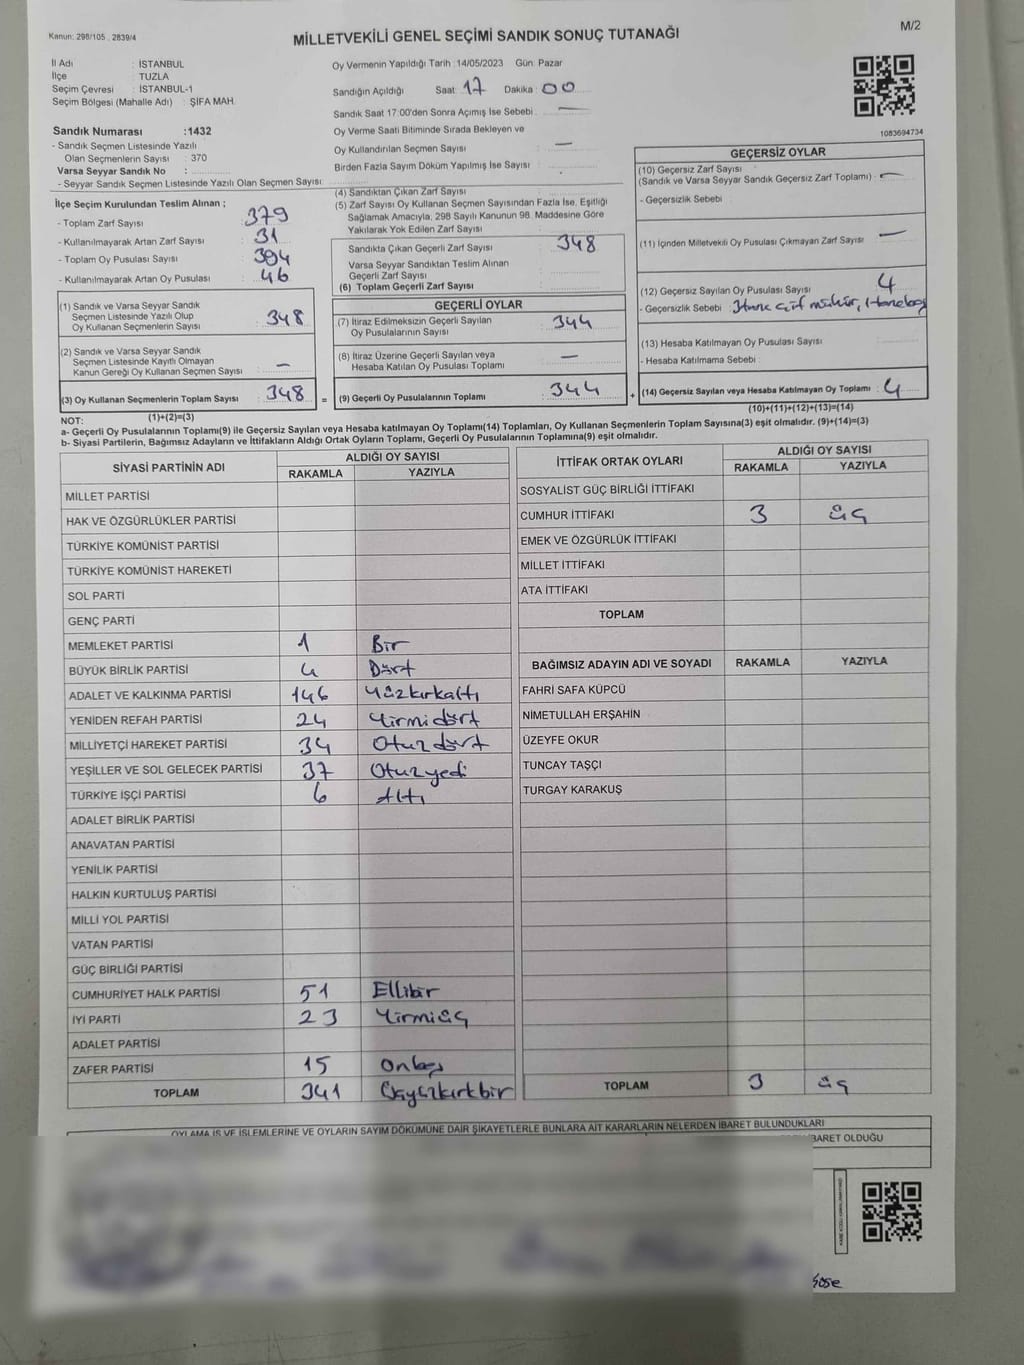 Kanun: 298/105 , 2839/4
M/2
MİLLETVEKİLİ GENEL SEÇİMİ SANDIK SONUÇ TUTANAĞI
İl Adı : İSTANBUL
İlçe : TUZLA
Seçim Çevresi : İSTANBUL-1
Seçim Bölgesi (Mahalle Adı) : ŞİFA MAH.
Oy Vermenin Yapıldığı Tarih :14/05/2023 Gün: Pazar
Sandığın Açıldığı Saat: 17 Dakika: 00
Sandık Saat 17:00'den Sonra Açımış İse Sebebi : —
Oy Verme Saati Bitiminde Sırada Bekleyen ve
Oy Kullandırılan Seçmen Sayısı : —
Birden Fazla Sayım Döküm Yapılmış İse Sayısı :
1083694734
Sandık Numarası :1432
- Sandık Seçmen Listesinde Yazılı
Olan Seçmenlerin Sayısı : 370
Varsa Seyyar Sandık No :
- Seyyar Sandık Seçmen Listesinde Yazılı Olan Seçmen Sayısı:
İlçe Seçim Kurulundan Teslim Alınan ;
- Toplam Zarf Sayısı : 379
- Kullanılmayarak Artan Zarf Sayısı : 31
- Toplam Oy Pusulası Sayısı : 394
- Kullanılmayarak Artan Oy Pusulası : 46
(1) Sandık ve Varsa Seyyar Sandık
Seçmen Listesinde Yazılı Olup
Oy Kullanan Seçmenlerin Sayısı : 348
(2) Sandık ve Varsa Seyyar Sandık
Seçmen Listesinde Kayıtlı Olmayan
Kanun Gereği Oy Kullanan Seçmen Sayısı : —
(3) Oy Kullanan Seçmenlerin Toplam Sayısı : 348
(1)+(2)=(3)
(4) Sandıktan Çıkan Zarf Sayısı :
(5) Zarf Sayısı Oy Kullanan Seçmen Sayısından Fazla İse, Eşitliği
Sağlamak Amacıyla, 298 Sayılı Kanunun 98. Maddesine Göre
Yakılarak Yok Edilen Zarf Sayısı :
Sandıkta Çıkan Geçerli Zarf Sayısı : 348
Varsa Seyyar Sandıktan Teslim Alınan
Geçerli Zarf Sayısı :
(6) Toplam Geçerli Zarf Sayısı :
GEÇERLİ OYLAR
(7) İtiraz Edilmeksizin Geçerli Sayılan
Oy Pusulalarının Sayısı : 344
(8) İtiraz Üzerine Geçerli Sayılan veya
Hesaba Katılan Oy Pusulası Toplamı : —
= (9) Geçerli Oy Pusulalarının Toplamı : 344
GEÇERSİZ OYLAR
(10) Geçersiz Zarf Sayısı
(Sandık ve Varsa Seyyar Sandık Geçersiz Zarf Toplamı) : —
- Geçersizlik Sebebi :
(11) İçinden Milletvekili Oy Pusulası Çıkmayan Zarf Sayısı : —
(12) Geçersiz Sayılan Oy Pusulası Sayısı : 4
- Geçersizlik Sebebi : çift mühür,
(13) Hesaba Katılmayan Oy Pusulası Sayısı :
- Hesaba Katılmama Sebebi :
+ (14) Geçersiz Sayılan veya Hesaba Katılmayan Oy Toplamı : 4
(10)+(11)+(12)+(13)=(14)
NOT:
a- Geçerli Oy Pusulalarının Toplamı(9) ile Geçersiz Sayılan veya Hesaba katılmayan Oy Toplamı(14) Toplamları, Oy Kullanan Seçmenlerin Toplam Sayısına(3) eşit olmalıdır. (9)+(14)=(3)
b- Siyasi Partilerin, Bağımsız Adayların ve İttifakların Aldığı Ortak Oyların Toplamı, Geçerli Oy Pusulalarının Toplamına(9) eşit olmalıdır.
SİYASİ PARTİNİN ADI
ALDIĞI OY SAYISI
RAKAMLA YAZIYLA
MİLLET PARTİSİ
HAK VE ÖZGÜRLÜKLER PARTİSİ
TÜRKİYE KOMÜNİST PARTİSİ
TÜRKİYE KOMÜNİST HAREKETİ
SOL PARTİ
GENÇ PARTİ
MEMLEKET PARTİSİ 1 Bir
BÜYÜK BİRLİK PARTİSİ 4 Dört
ADALET VE KALKINMA PARTİSİ 146 Yüzkırkaltı
YENİDEN REFAH PARTİSİ 24 Yirmidört
MİLLİYETÇİ HAREKET PARTİSİ 34 Otuzdört
YEŞİLLER VE SOL GELECEK PARTİSİ 37 Otuzyedi
TÜRKİYE İŞÇİ PARTİSİ 6 Altı
ADALET BİRLİK PARTİSİ
ANAVATAN PARTİSİ
YENİLİK PARTİSİ
HALKIN KURTULUŞ PARTİSİ
MİLLİ YOL PARTİSİ
VATAN PARTİSİ
GÜÇ BİRLİĞİ PARTİSİ
CUMHURİYET HALK PARTİSİ 51 Ellibir
İYİ PARTİ 23 Yirmiüç
ADALET PARTİSİ
ZAFER PARTİSİ 15 Onbeş
TOPLAM 341 Üçyüzkırkbir
İTTİFAK ORTAK OYLARI
ALDIĞI OY SAYISI
RAKAMLA YAZIYLA
SOSYALİST GÜÇ BİRLİĞİ İTTİFAKI
CUMHUR İTTİFAKI 3 üç
EMEK VE ÖZGÜRLÜK İTTİFAKI
MİLLET İTTİFAKI
ATA İTTİFAKI
TOPLAM
BAĞIMSIZ ADAYIN ADI VE SOYADI RAKAMLA YAZIYLA
FAHRİ SAFA KÜPCÜ
NİMETULLAH ERŞAHİN
ÜZEYFE OKUR
TUNCAY TAŞÇI
TURGAY KARAKUŞ
TOPLAM 3 üç
OYLAMA İŞ VE İŞLEMLERİNE VE OYLARIN SAYIM DÖKÜMÜNE DAİR ŞİKAYETLERLE BUNLARA AİT KARARLARIN NELERDEN İBARET BULUNDUKLARI
BARET OLDUĞU